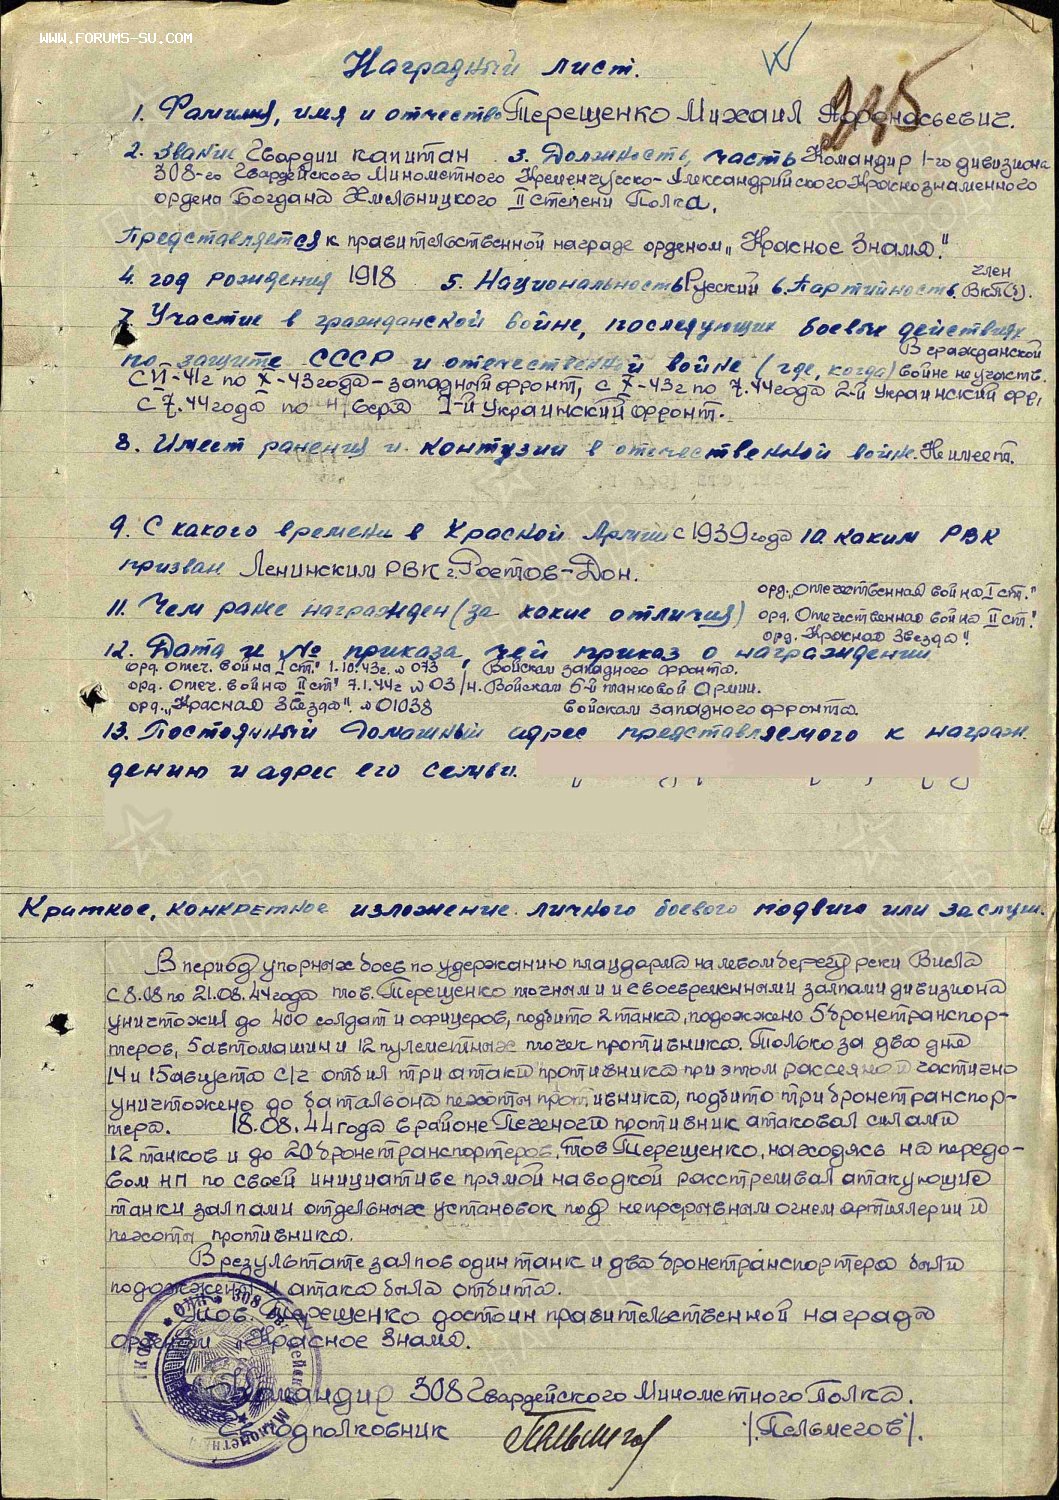 WWW.FORUMS-SU.COM
Наградный лист.
1. Фамилия, имя и отчество Терещенко Михаил Афонасьевич.
2. Звание Гвардии капитан . 3. Должность, часть Командир 1-го дивизиона
308-го Гвардейского Минометного Кременчугско-Александрийского Краснознаменного
ордена Богдана Хмельницкого II степени Полка.
Представляется к правительственной награде орденом „Красное Знамя".
4. год рождения 1918 5. Национальность Русский 6. Партийность член
ВКП(б).
7. Участие в гражданской войне, последующих боевых действиях
по защите СССР и отечественной войне (где, когда) В гражданской
войне не участв.
С VI-41г по X-43 года - западный фронт, с X-43г по 7.44 года 2-й Украинский фр,
с 7.44 года по 1-й Украинский фронт.
8. Имеет ранения и контузии в отечественной войне. Не имеет.
9. С какого времени в Красной Армии с 1939 года 10 каким РВК
призван Ленинским РВК г. Ростов-Дон.
11. Чем ранее награжден (за какие отличия) орд. „Отечественная война I ст."
орд. Отечественная война II ст."
орд. „Красная Звезда".
12. Дата и № приказа, чей приказ о награждении
орд. Отеч. война I ст." 1.10.43г. № 073 Войскам западного фронта.
орд. Отеч. война II ст" 7.1.44г № 03/н. Войскам 5-й танковой Армии.
орд. „Красная Звезда". № 01038 войскам западного фронта.
13. Постоянный домашный адрес представляемого к награж
дению и адрес его семьи.
Краткое, конкретное изложение личного боевого подвига или заслуги.
В период упорных боев по удержанию плацдарма на левом берегу реки Висла
с 8.08 по 21.08.44 года тов. Терещенко точными и своевременными залпами дивизиона
уничтожил до 400 солдат и офицеров, подбито 2 танка, подожжено 5 бронетранспор-
теров, 5 автомашин и 12 пулеметных точек противника. Только за два дня
14 и 15 августа с/г отбил три атаки противника при этом рассеяно и частично
уничтожено до батальона пехоты противника, подбито три бронетранспор-
тера. 18.08.44 года в районе противник атаковал силами
12 танков и до 20 бронетранспортеров. Тов Терещенко, находясь на передо-
вом НП по своей инициативе прямой наводкой расстреливал атакующие
танки залпами отдельных установок под непрерывным огнем артиллерии и
пехоты противника.
В результате залпов один танк и два бронетранспортера были
подожжены и атака была отбита.
Тов. Терещенко достоин правительственной награды
орденом „Красное Знамя.
Командир 308 Гвардейского Минометного Полка
Подполковник /Пельмегов/.